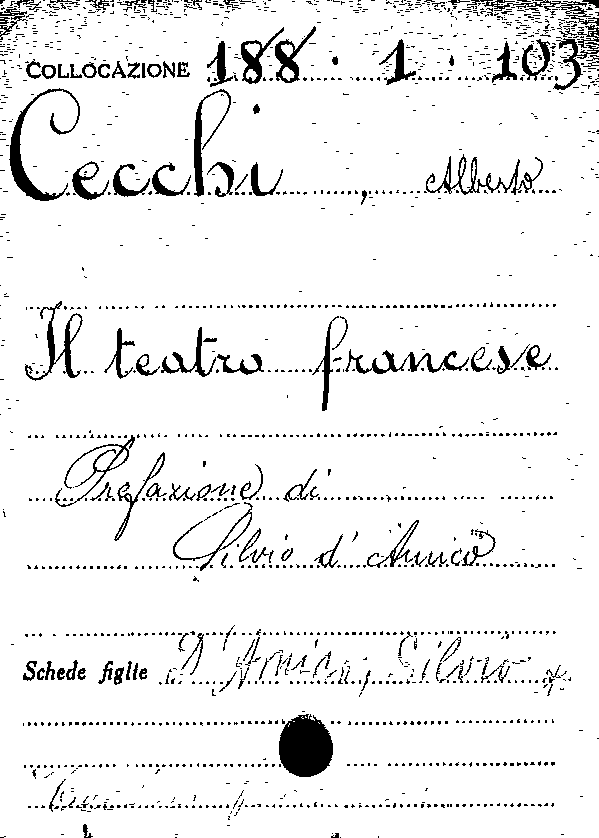 COLLOCAZIONE 188 · 1 · 103
Cecchi, Alberto
Il teatro francese
Prefazione di
Silvio d'Amico
Schede figlie D'Amico, Silvio